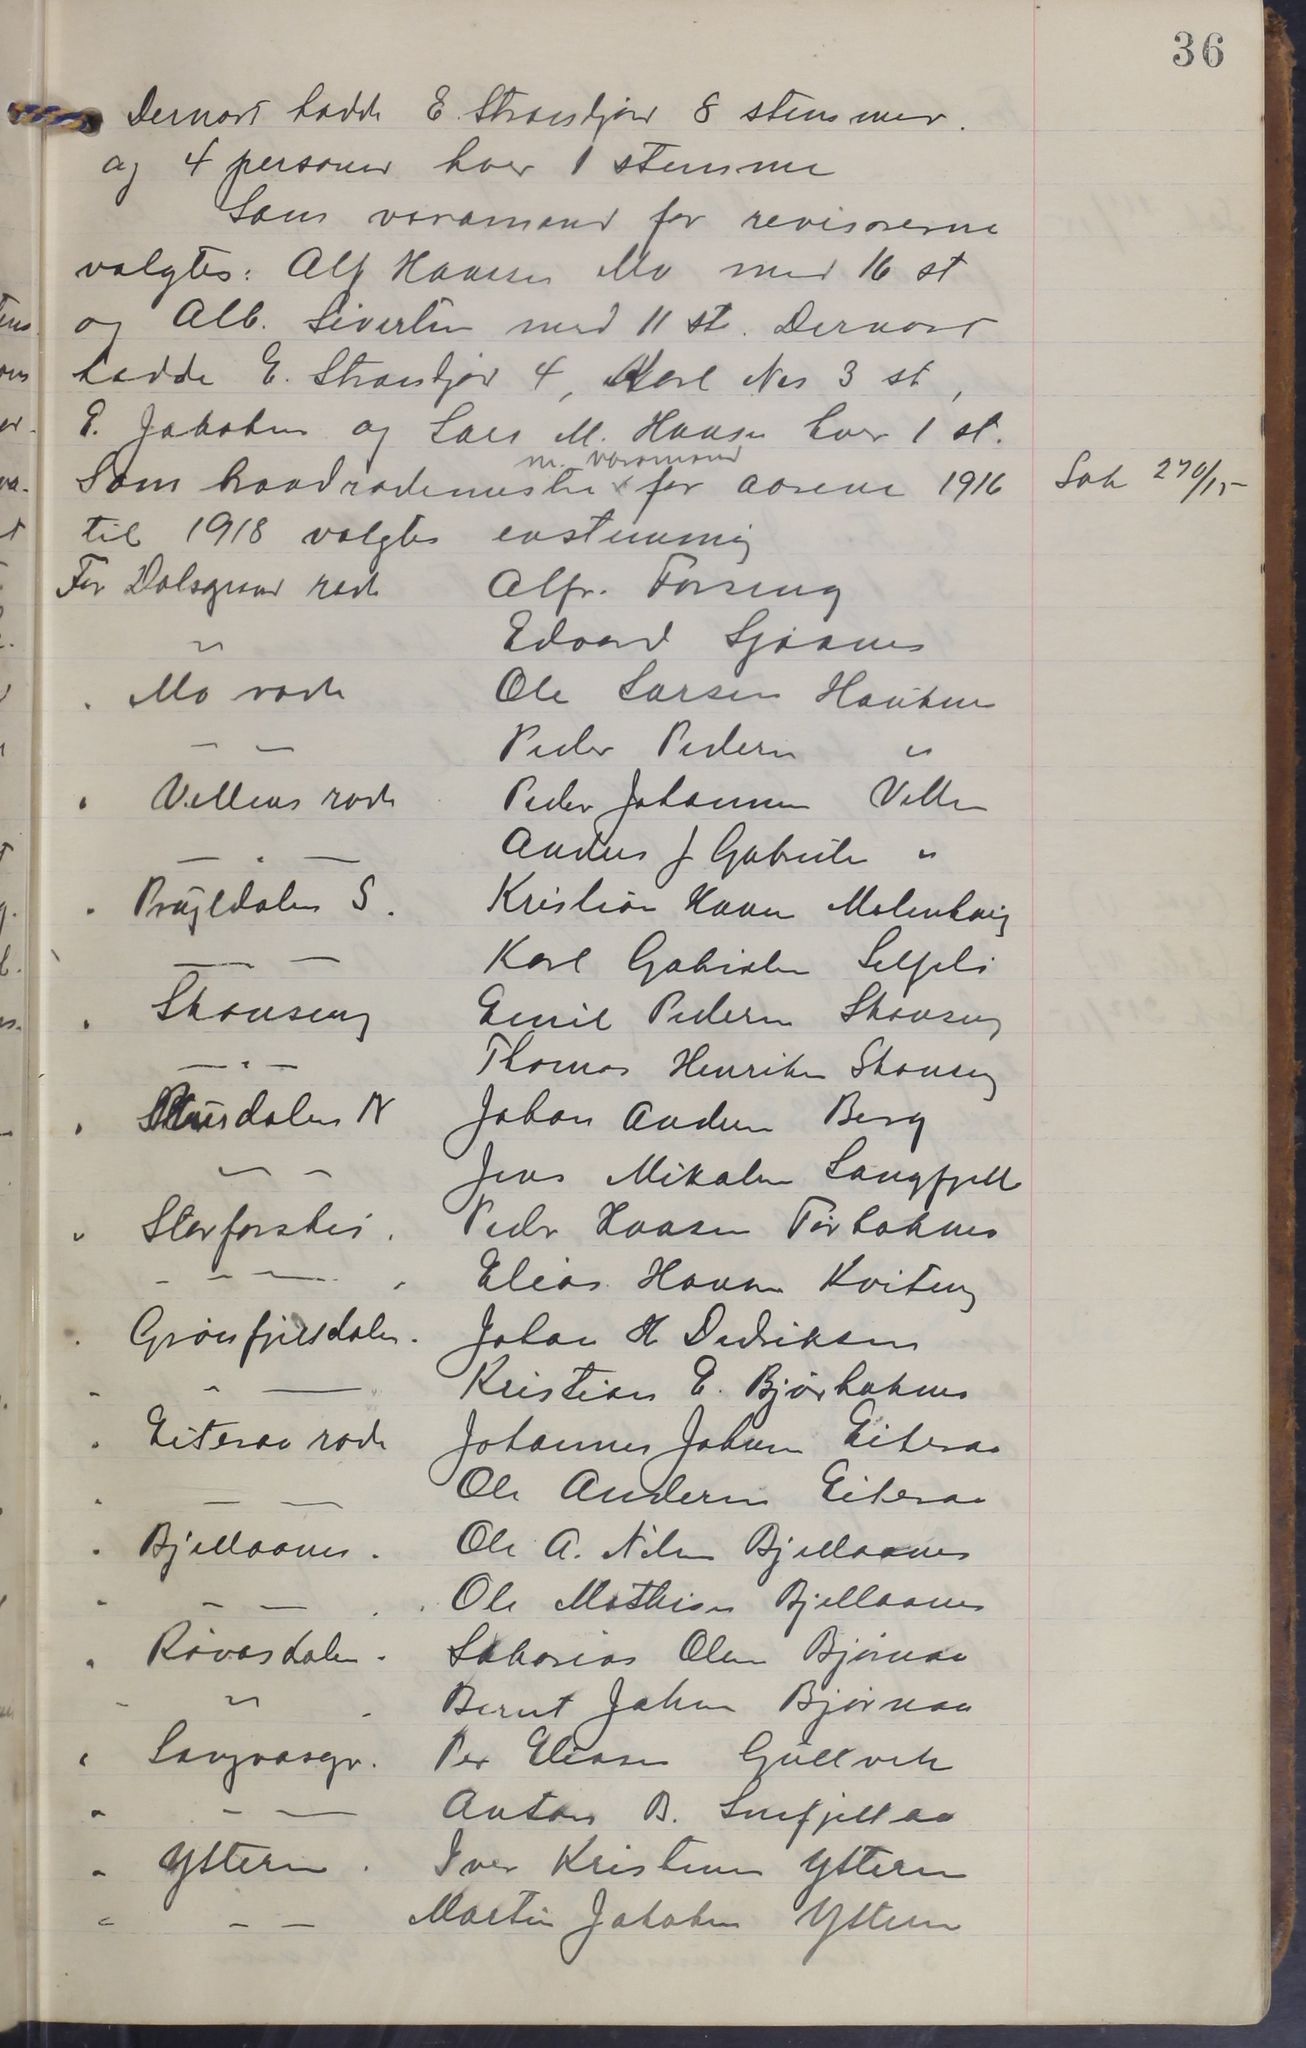 36
Dernæst hadde E. Strandjord 8 stemmer.
og 4 personer hver 1 stemme
Som varamænd for revisorerne
valgtes: Alf Hansen Mo med 16 st
og Alb. Sivertsen med 11 st. Dernæst
hadde E. Strandjord 4, Karl Nes 3 st,
E. Jakobsen og Lars M. Hansen hver 1 st.
m. varamænd
Som brandrodemestre for aarene 1916
Sak 270/15
til 1918 valgtes enstemmig
For Dalsgrend rode Alfr. Forseng
" Edvard Sjåanes
" Mo rode Ole Larsen Hauknes
— — Peder Pedersen "
" Villens rode Peder Johannesen Villen
— " — Anders J Gabrielsen "
" S. Kristian Hansen Molenhaug
— — Karl Gabrielsen Selfjeli
" Skonseng Emil Pedersen Skonseng
— " — Thomas Henriksen Skonseng
" dalen N Johan Andersen Berg
— — Jens Mikalsen Langfjell
" Storforshei. Peder Hansen Tørbakmo
— — — Elias Hansen Kviteng
" Grønfjeldsdalen. Johan H Dedriksen
" " — Kristian E. Bjørbakmo
" Eiteraa rode Johannes Johnsen Eiteraa
" — — Ole Andersen Eiteraa
" Bjellaanes. Ole A. Nilsen Bjellaanes
" — — Ole Mathisen Bjellaanes
" Røvasdalen. Sakarias Olsen Bjørnaa
" " Bernt Johnsen Bjørnaa
" Langvasgr. Per Eliasen Gullvik
" — — Anton B. Snefjellaa
" Ytteren. Iver Kristensen Ytteren
" — — Martin Jakobsen Ytteren